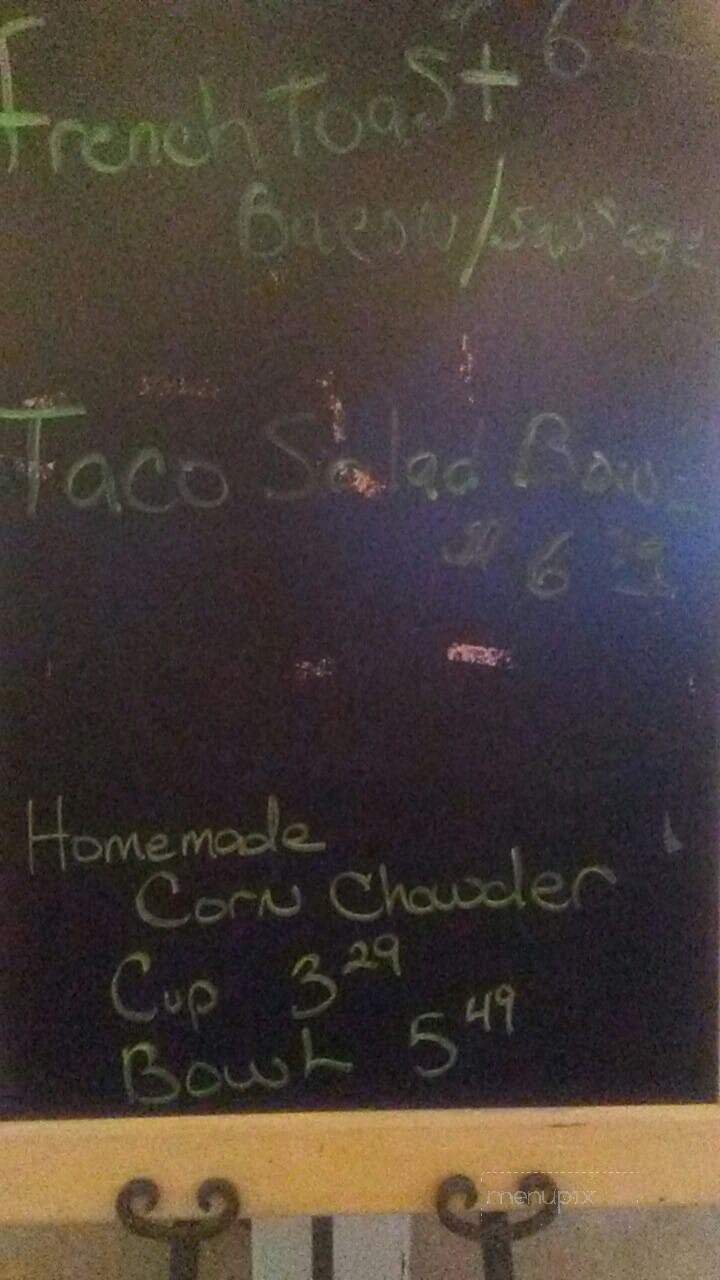 6
French Toast
Bacon/Sausage
Taco Salad Bowl
Homemade
Corn Chowder
Cup 3 29
Bowl 5 49
menupix